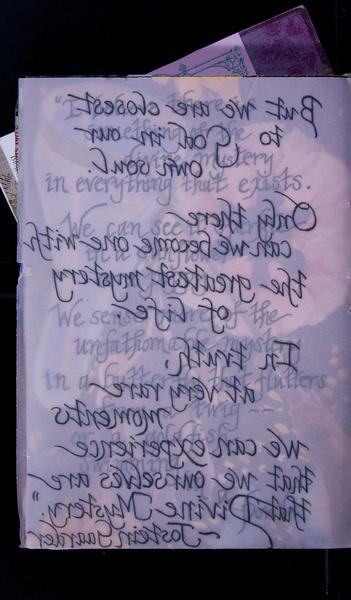 But we are closest
to God in our
own soul.
Only there
can we become one with
the greatest mystery
of life.
In truth
at very rare
moments
we can experience
that we ourselves are
that Divine Mystery."
~Jostein Gaarder
"I
something of the
divine mystery
in everything that exists.
We can see it
in a sunflower
We sense more of the
unfathomable mystery
in a butterfly that flutters
twig ~
or a goldfish
swimming